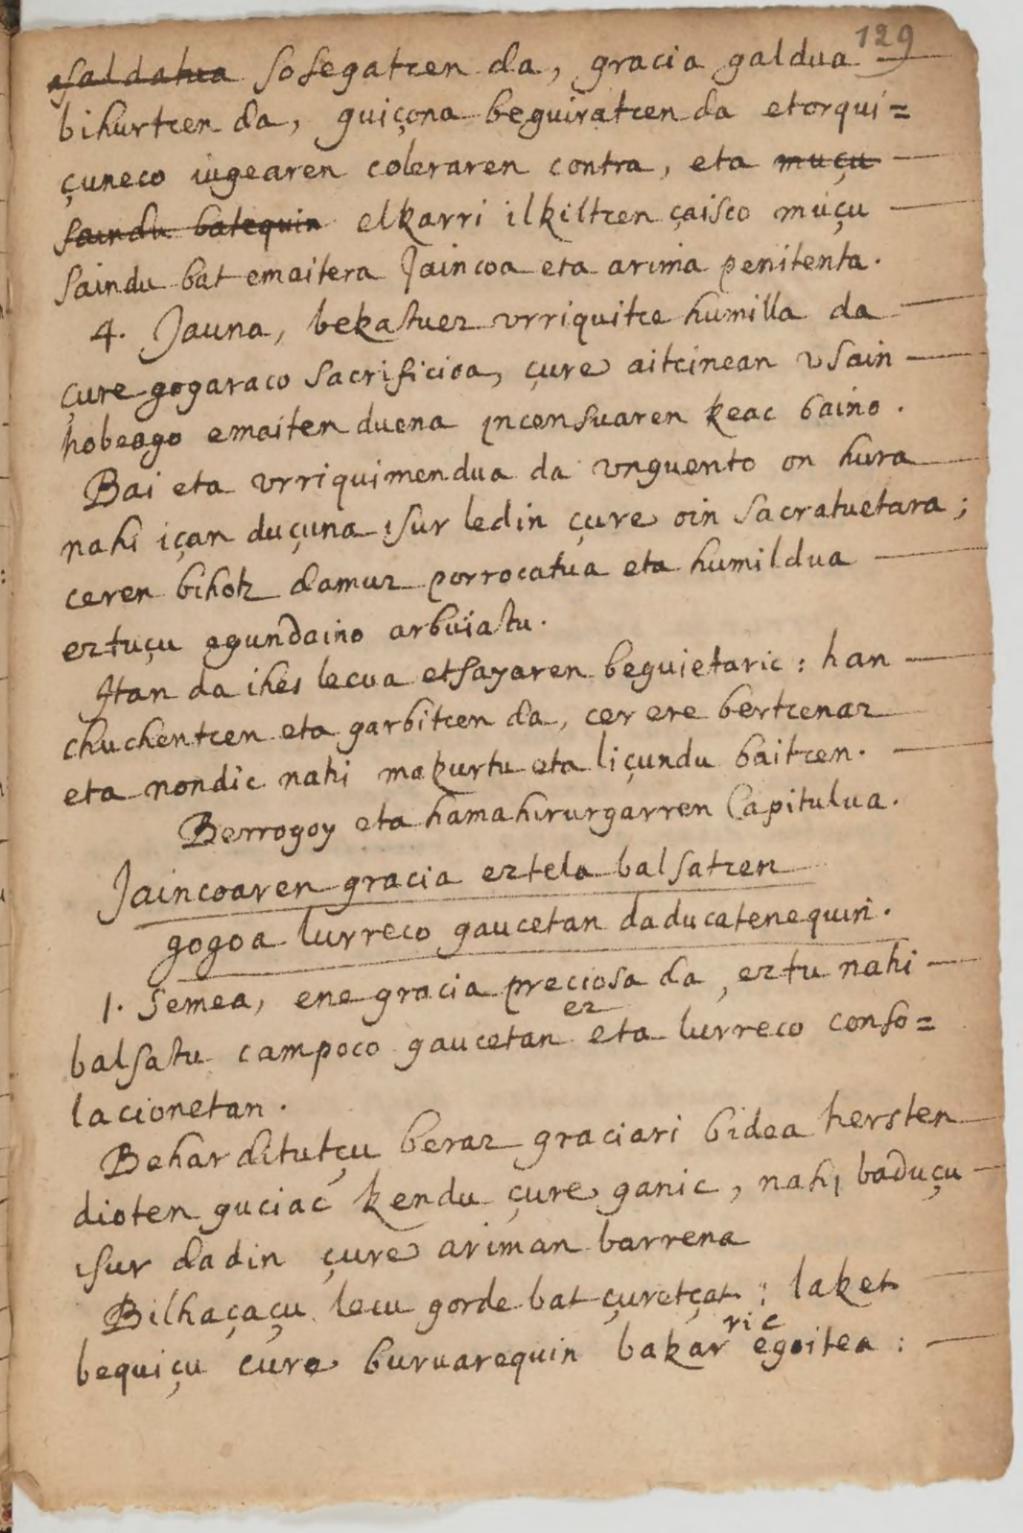 129
asaldatua sosegatzen da, gracia galdua
bihurtzen da, guiçona beguiratzen da etorqui=
çuneco iugearen coleraren contra, eta muçu
saindu batequin elkarri ilkiltzen çaisco muçu
saindu bat emaitera Jaincoa eta arima penitenta.
4. Jauna, bekatuez vrriquitze humilla da
çure gogaraco sacrificioa, çure aitcinean vsain
hobeago emaiten duena incensuaren keac baino.
Bai eta vrriquimendua da vnguento on hura
nahi içan duçuna isur ledin çure oin sacratuetara;
ceren bihotz damuz porrocatua eta humildua
eztuçu egundaino arbuiatu.
Itan da ihes lecua etsayaren beguietaric: han
chuchentzen eta garbitzen da, cer ere bertzenaz
eta nondic nahi makurtu eta liçundu baitzen.
Berrogoy eta hamahirurgarren Capitulua.
Jaincoaren gracia eztela balsatzen
gogoa lurreco gaucetan daducatenequin.
1. Semea, ene gracia preciosa da, eztu nahi
balsatu campoco gaucetan ez eta lurreco conso=
lacionetan.
Behar ditutçu beraz graciari bidea hersten
dioten guciac kendu çure ganic, nahi baduçu
isur dadin çure ariman barrena
Bilhaçaçu lecu gorde bat çuretçat: laket
bequiçu cure buruarequin bakarric egoitea: